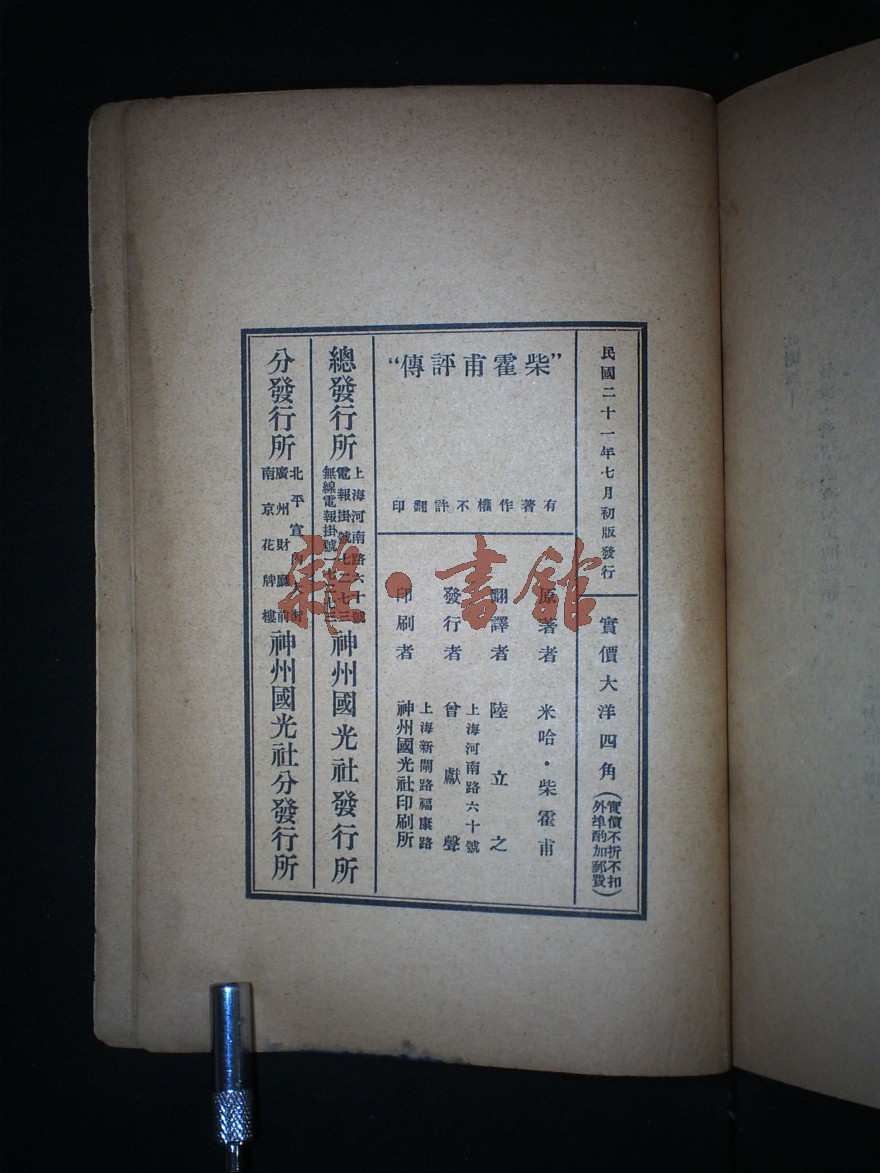 民國二十一年七月初版發行
實價大洋四角
（實價不折不扣
外埠酌加郵費）
“柴霍甫評傳”
有著作權不許翻印
原著者 米哈·柴霍甫
翻譯者 陸立之
上海河南路六十號
發行者 曾獻聲
上海新閘路福康路
印刷者 神州國光社印刷所
總發行所
上海河南路六十號
電報掛號七二七三
無線電報掛號一七二七三
神州國光社發行所
分發行所
北平宣內大街
廣州財廳前
南京花牌樓
神州國光社分發行所
雜·書館